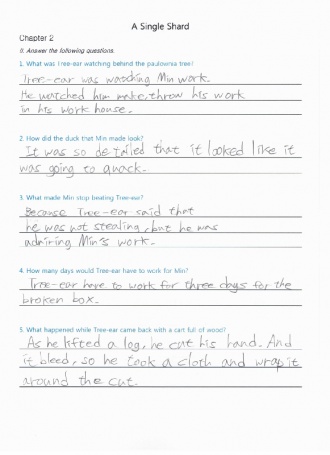 A Single Shard
Chapter 2
II. Answer the following questions.
1. What was Tree-ear watching behind the paulownia tree?
Tree-ear was watching Min work.
He watched him make, throw his work
in his work house.
2. How did the duck that Min made look?
It was so detailed that it looked like it
was going to quack.
3. What made Min stop beating Tree-ear?
Because Tree-ear said that
he was not stealing, but he was
admiring Min's work.
4. How many days would Tree-ear have to work for Min?
Tree-ear have to work for three days for the
broken box.
5. What happened while Tree-ear came back with a cart full of wood?
As he lifted a log, he cut his hand. And
it bleed, so he took a cloth and wrap it
around the cut.